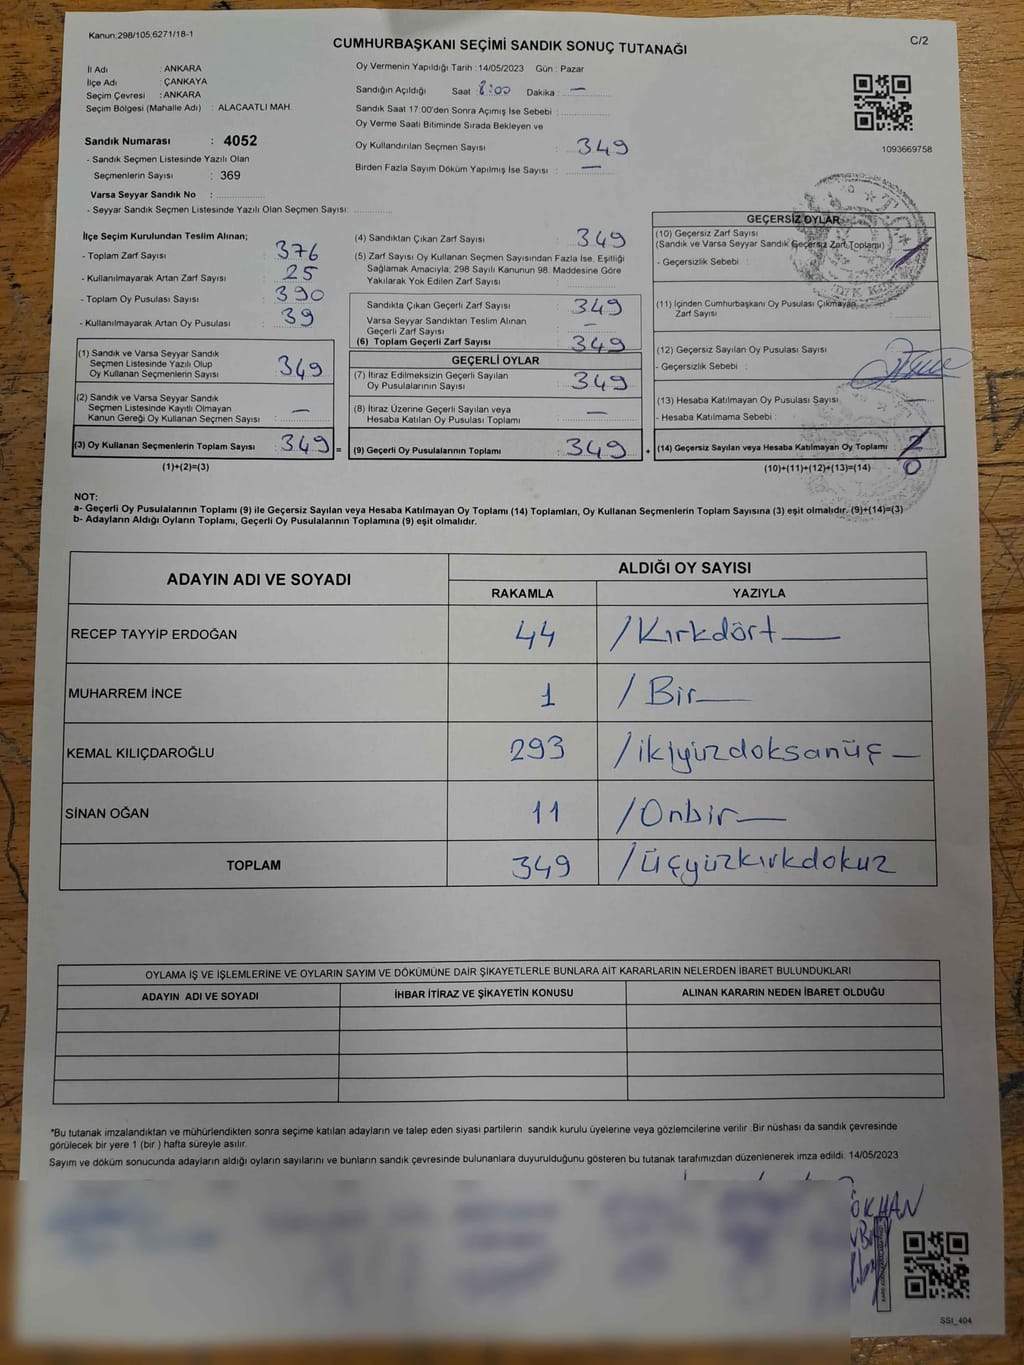 Kanun:298/105;6271/18-1
CUMHURBAŞKANI SEÇİMİ SANDIK SONUÇ TUTANAĞI
C/2
İl Adı : ANKARA
İlçe Adı : ÇANKAYA
Seçim Çevresi : ANKARA
Seçim Bölgesi (Mahalle Adı) : ALACAATLI MAH.
Sandık Numarası : 4052
- Sandık Seçmen Listesinde Yazılı Olan
Seçmenlerin Sayısı : 369
Varsa Seyyar Sandık No :
- Seyyar Sandık Seçmen Listesinde Yazılı Olan Seçmen Sayısı:
Oy Vermenin Yapıldığı Tarih : 14/05/2023 Gün : Pazar
Sandığın Açıldığı Saat : 8:00 Dakika : —
Sandık Saat 17:00'den Sonra Açımış İse Sebebi :
Oy Verme Saati Bitiminde Sırada Bekleyen ve
Oy Kullandırılan Seçmen Sayısı : 349
Birden Fazla Sayım Döküm Yapılmış İse Sayısı : —
1093669758
İlçe Seçim Kurulundan Teslim Alınan;
- Toplam Zarf Sayısı : 376
- Kullanılmayarak Artan Zarf Sayısı : 25
- Toplam Oy Pusulası Sayısı : 390
- Kullanılmayarak Artan Oy Pusulası : 39
(1) Sandık ve Varsa Seyyar Sandık
Seçmen Listesinde Yazılı Olup
Oy Kullanan Seçmenlerin Sayısı : 349
(2) Sandık ve Varsa Seyyar Sandık
Seçmen Listesinde Kayıtlı Olmayan
Kanun Gereği Oy Kullanan Seçmen Sayısı : —
(3) Oy Kullanan Seçmenlerin Toplam Sayısı : 349 =
(1)+(2)=(3)
(4) Sandıktan Çıkan Zarf Sayısı : 349
(5) Zarf Sayısı Oy Kullanan Seçmen Sayısından Fazla İse, Eşitliği
Sağlamak Amacıyla; 298 Sayılı Kanunun 98. Maddesine Göre
Yakılarak Yok Edilen Zarf Sayısı :
Sandıkta Çıkan Geçerli Zarf Sayısı : 349
Varsa Seyyar Sandıktan Teslim Alınan
Geçerli Zarf Sayısı : —
(6) Toplam Geçerli Zarf Sayısı : 349
GEÇERLİ OYLAR
(7) İtiraz Edilmeksizin Geçerli Sayılan
Oy Pusulalarının Sayısı : 349
(8) İtiraz Üzerine Geçerli Sayılan veya
Hesaba Katılan Oy Pusulası Toplamı : —
(9) Geçerli Oy Pusulalarının Toplamı : 349 +
GEÇERSİZ OYLAR
(10) Geçersiz Zarf Sayısı
(Sandık ve Varsa Seyyar Sandık Geçersiz Zarf Toplamı)
- Geçersizlik Sebebi :
(11) İçinden Cumhurbaşkanı Oy Pusulası Çıkmayan
Zarf Sayısı :
(12) Geçersiz Sayılan Oy Pusulası Sayısı
- Geçersizlik Sebebi :
(13) Hesaba Katılmayan Oy Pusulası Sayısı : —
- Hesaba Katılmama Sebebi :
(14) Geçersiz Sayılan veya Hesaba Katılmayan Oy Toplamı
0
(10)+(11)+(12)+(13)=(14)
NOT:
a- Geçerli Oy Pusulalarının Toplamı (9) ile Geçersiz Sayılan veya Hesaba Katılmayan Oy Toplamı (14) Toplamları, Oy Kullanan Seçmenlerin Toplam Sayısına (3) eşit olmalıdır. (9)+(14)=(3)
b- Adayların Aldığı Oyların Toplamı, Geçerli Oy Pusulalarının Toplamına (9) eşit olmalıdır.
ADAYIN ADI VE SOYADI
ALDIĞI OY SAYISI
RAKAMLA YAZIYLA
RECEP TAYYİP ERDOĞAN 44 /Kırkdört—
MUHARREM İNCE 1 /Bir—
KEMAL KILIÇDAROĞLU 293 /ikiyüzdoksanüç—
SİNAN OĞAN 11 /Onbir—
TOPLAM 349 /üçyüzkırkdokuz
OYLAMA İŞ VE İŞLEMLERİNE VE OYLARIN SAYIM VE DÖKÜMÜNE DAİR ŞİKAYETLERLE BUNLARA AİT KARARLARIN NELERDEN İBARET BULUNDUKLARI
ADAYIN ADI VE SOYADI İHBAR İTİRAZ VE ŞİKAYETİN KONUSU ALINAN KARARIN NEDEN İBARET OLDUĞU
*Bu tutanak imzalandıktan ve mühürlendikten sonra seçime katılan adayların ve talep eden siyasi partilerin sandık kurulu üyelerine veya gözlemcilerine verilir. Bir nüshası da sandık çevresinde
görülecek bir yere 1 (bir) hafta süreyle asılır.
Sayım ve döküm sonucunda adayların aldığı oyların sayılarını ve bunların sandık çevresinde bulunanlara duyurulduğunu gösteren bu tutanak tarafımızdan düzenlenerek imza edildi. 14/05/2023
SSI_404